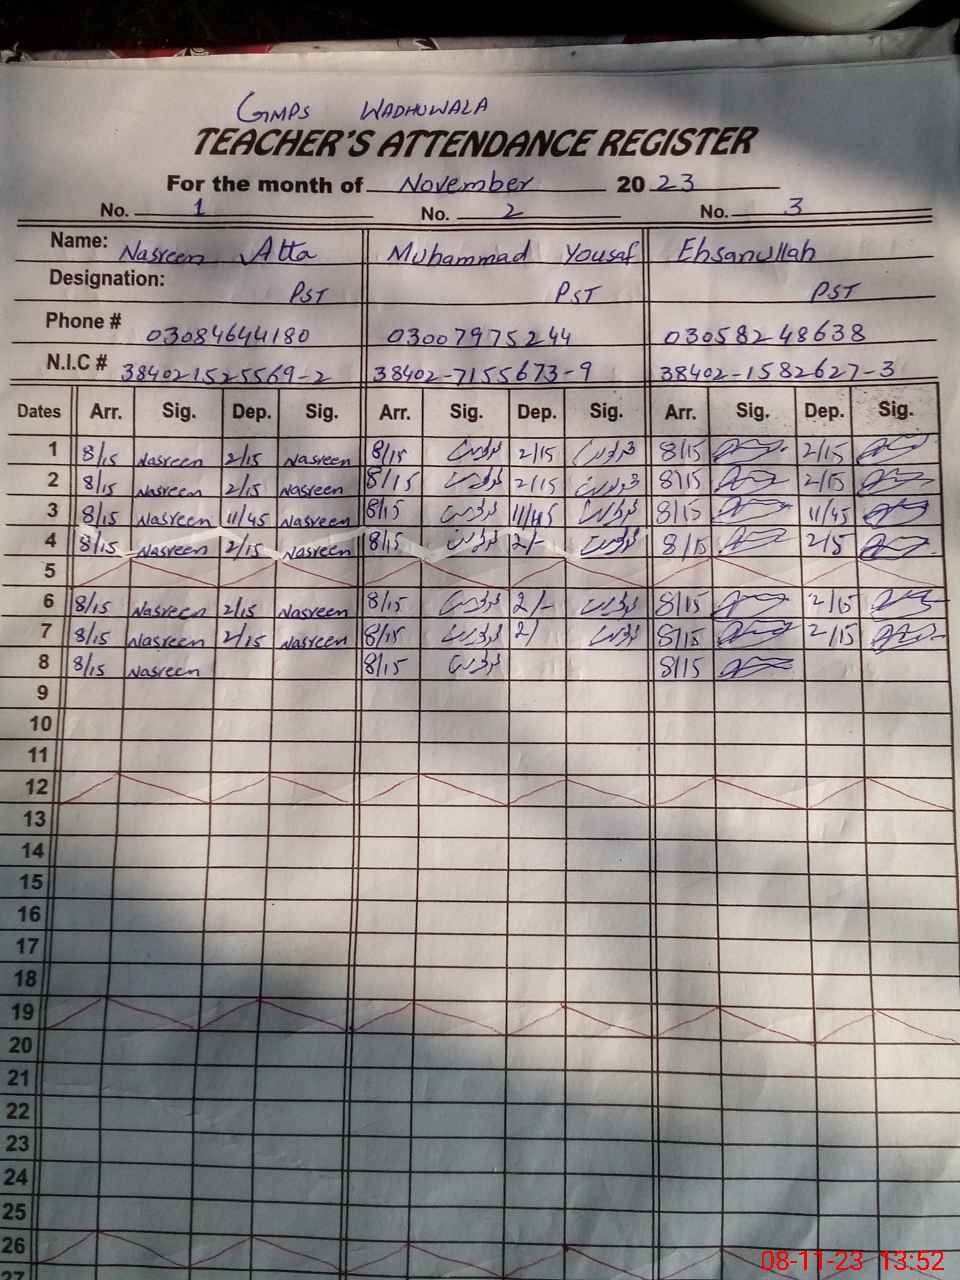 GMPS WADHUWALA
TEACHER'S ATTENDANCE REGISTER
For the month of November 2023
No. 1 No. 2 No. 3
Name: Nasreen Atta Muhammad Yousaf Ehsanullah
Designation: PST PST PST
Phone # 03084644180 03007975244 03058248638
N.I.C # 384021525569-2 38402-7155673-9 38402-1582627-3
Dates Arr. Sig. Dep. Sig. Arr. Sig. Dep. Sig. Arr. Sig. Dep. Sig.
1 8/15 Nasreen 2/15 Nasreen 8/15 2/15 8/15 2/15
2 8/15 Nasreen 2/15 Nasreen 8/15 2/15 8/15 2/15
3 8/15 Nasreen 11/45 Nasreen 8/15 11/45 8/15 11/45
4 8/15 Nasreen 2/15 Nasreen 8/15 2/- 8/15 2/5
5
6 8/15 Nasreen 2/15 Nasreen 8/15 2/- 8/15 2/15
7 8/15 Nasreen 2/15 Nasreen 8/15 2/ 8/15 2/15
8 8/15 Nasreen 8/15 8/15
9
10
11
12
13
14
15
16
17
18
19
20
21
22
23
24
25
26
27
08-11-23 13:52